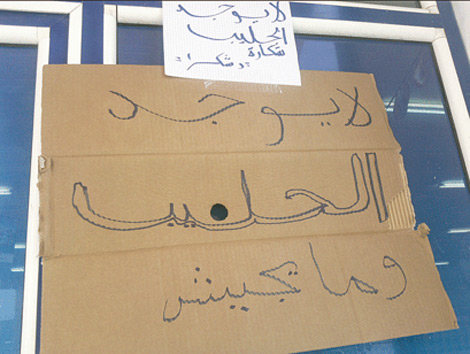 لا يوجد
الحليب
شكارة
"وشكرا"
لا يوجد
الحليب
وما تجيبش